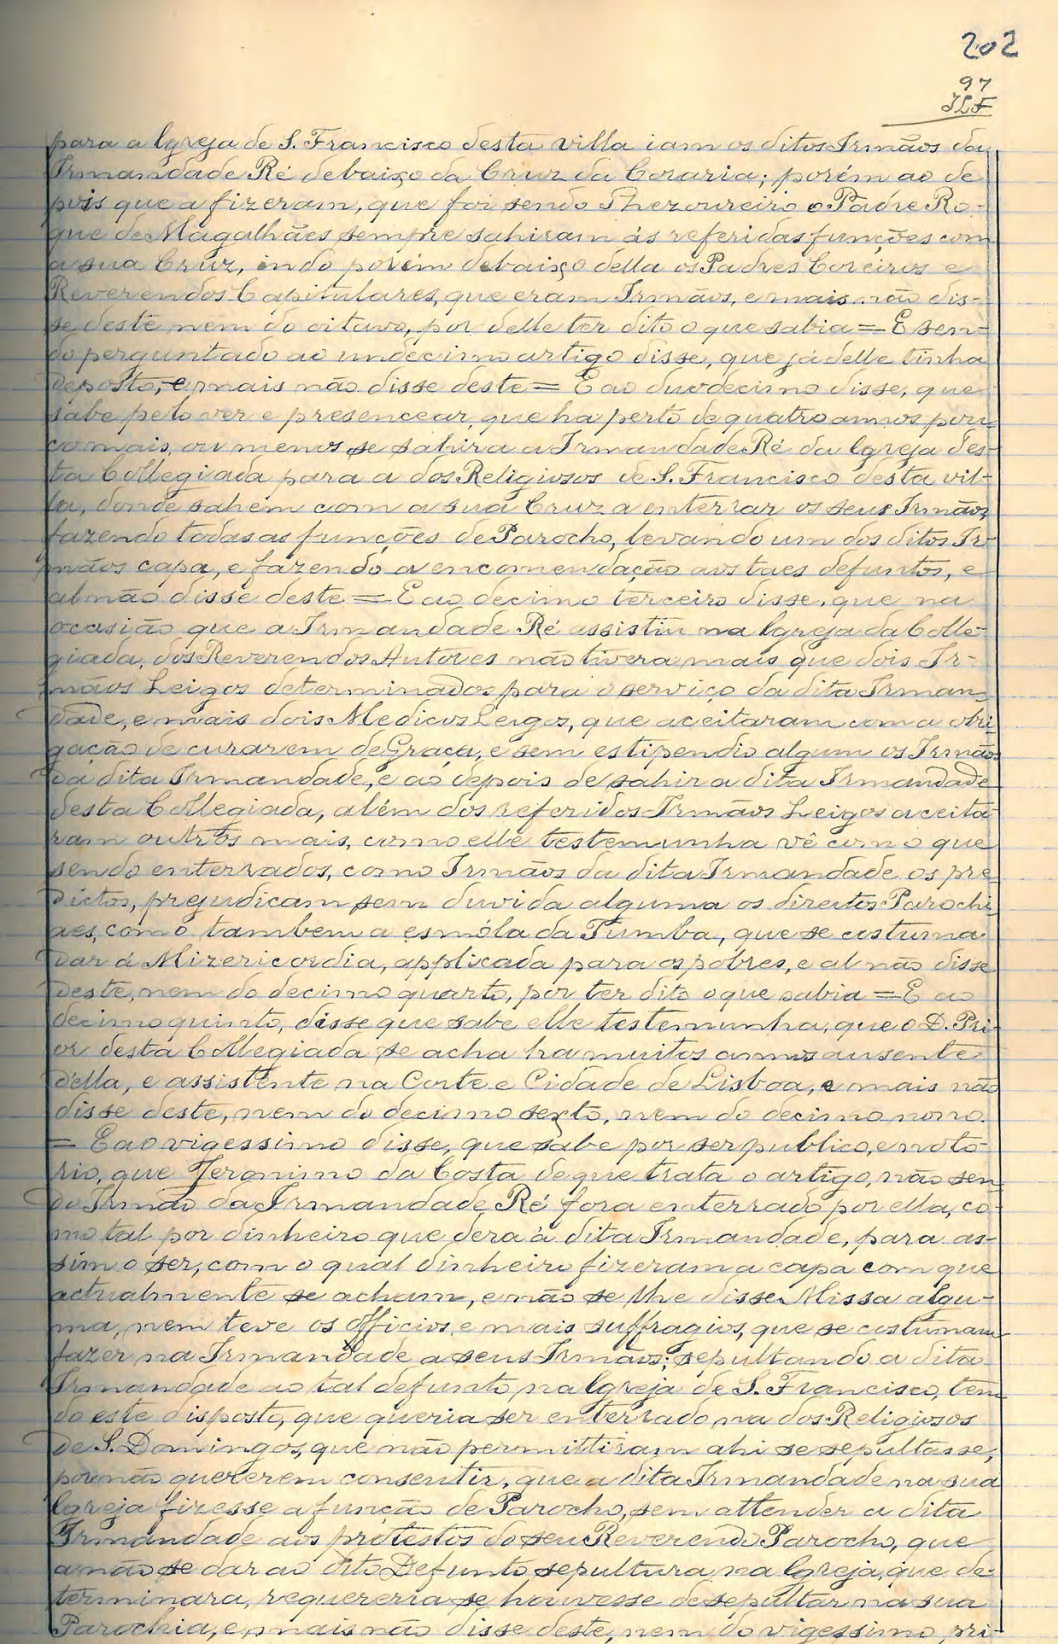 202
97
JLF
para a Igreja de S. Francisco desta villa iam os ditos Irmãos da
Irmandade Ré debaixo da Cruz da Coraria; porém ao de
pois que a fizeram, que foi sendo Thezoureiro o Padre Ro-
que de Magalhães sempre sahiram ás referidas funções com
a sua Cruz, indo porém debaixo della os Padres Coreiros e
Reverendos Capitulares, que eram Irmãos, e mais não dis-
se deste nem do oitavo, por delle ter dito o que sabia = E sen-
do perguntado ao undecimo artigo disse, que já delle tinha
deposto, e mais não disse deste = E ao duodecimo disse, que
sabe pelo ver e presencear, que ha perto de quatro annos pou-
co mais, ou menos se sahira a Irmandade Ré da Igreja des-
ta Collegiada para a dos Religiosos de S. Francisco desta vil-
la, donde sahem com a sua Cruz a enterrar os seus Irmãos,
fazendo todas as funções de Parocho, levando um dos ditos Ir-
mãos capa, e fazendo a encomendação aos taes defuntos, e
al não disse deste = E ao decimo terceiro disse, que na
ocasião que a Irmandade Ré assistiu na Igreja da Colle-
giada, dos Reverendos Autores não tivera mais que dois Ir-
mãos Leigos determinados para o serviço da dita Irman-
dade, e mais dois Medicos Leigos, que aceitaram com a obri
gação de curarem de Graça, e sem estipendio algum os Irmãos
da dita Irmandade, e ao depois de sahir a dita Irmandade
desta Collegiada, além dos referidos Irmãos Leigos aceita-
ram outros mais, como elle testemunha vê com o que
sendo enterrados, como Irmãos da dita Irmandade os pre
dictos, prejudicam sem duvida alguma os direitos Parochi
aes, como tambem a esmóla da Tumba, que se costuma
dar á Mizericordia, applicada para os pobres, e al não disse
deste, nem do decimo quarto, por ter dito o que sabia = E ao
decimo quinto, disse que sabe elle testemunha, que o D. Pri-
or desta Collegiada se acha ha muitos annos ausente
della, e assistente na Corte e Cidade de Lisboa, e mais não
disse deste, nem do decimo sexto, nem do decimo nono.
= E ao vigessimo disse, que sabe por ser publico, e noto-
rio, que Jeronimo da Costa de que trata o artigo, não sen
do Irmão da Irmandade Ré fora enterrado por ella, co-
mo tal por dinheiro que dera á dita Irmandade, para as-
sim o ser, com o qual dinheiro fizeram a capa com que
actualmente se acham, e não se lhe disse Missa algu-
ma, nem teve os Officios, e mais suffragios, que se costumam
fazer na Irmandade a seus Irmãos; sepultando a dita
Irmandade ao tal defunto, na Igreja de S. Francisco, ten
do este disposto, que queria ser enterrado na dos Religiosos
de S. Domingos, que não permittiram ahi se sepultasse,
por não quererem consentir, que a dita Irmandade na sua
Igreja fizesse a função de Parocho, sem attender a dita
Irmandade aos protestos do seu Reverendo Parocho, que
a não se dar ao dito Defunto, sepultura na Igreja, que de-
terminara, requereria se houvesse de sepultar na sua
Parochia, e mais não disse deste, nem do vigessimo pri-